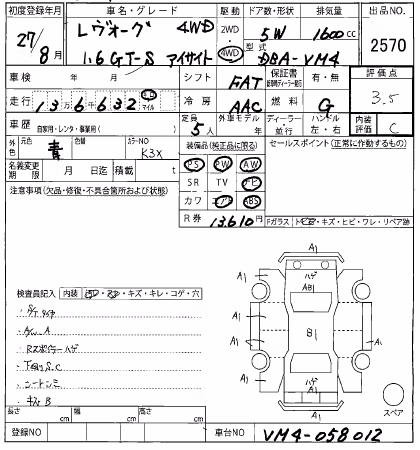 初度登録年月 車名・グレード 駆動 ドア数・形状 排気量 出品NO.
27/8月 レヴォーグ 4WD 2WD 5W 1600cc 2570
1.6 GT-S アイサイト 4WD 型式 DBA-VM4
車検 年 月 シフト FAT 保証書 有・無 評価点
走行 13万6千632 km マイル 冷房 AAC 燃料 G 3.5
車歴 自家用・レンタ・事業用( ) 定員 5人 外車モデル 年 ディーラー・並行 ハンドル 左・右 内装評価 C
外色 元色 青 色替 カラーNO K3X 装備品(純正品に限る) セールスポイント(正常に作動するもの)
名義変更期限 月 日迄 積載 t PS PW AW
SR TV ナビ
注意事項(欠品・修復・不具合箇所および状態) カワ エアB ABS
R券 13,610円 Fガラス トビ石・キズ・ヒビ・ワレ・リペア跡
検査員記入 内装 ・キズ・キレ・コゲ・穴
・A/W A
・下回りS.C
・キズ B
A1
ハゲ
AB1
A1
A1
B1
A1
A1
A1
A1
ハゲ
A1
スペア
長さ cm 幅 cm 高さ cm
登録NO 車台NO VM4-058012